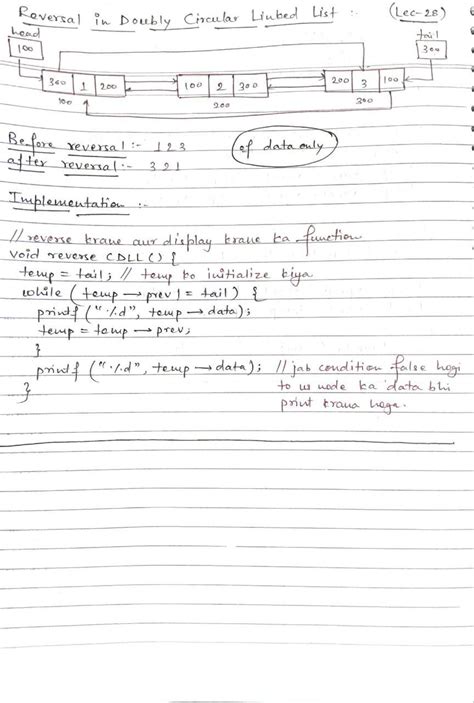 Reversal in Doubly Circular Linked List :- (Lec-28)
head tail
100 300
300 1 200 100 2 300 200 3 100
100 200 300
Before reversal :- 1 2 3 of data only
after reversal :- 3 2 1
Implementation :-
// reverse krane aur display krane ka function
void reverse CDLL () {
temp = tail; // temp ko initialize kiya
while ( temp → prev != tail) {
printf ("%d", temp → data);
temp = temp → prev;
}
printf ("%d", temp → data); // jab condition false hogi
to us node ka data bhi
} print krana hoga.